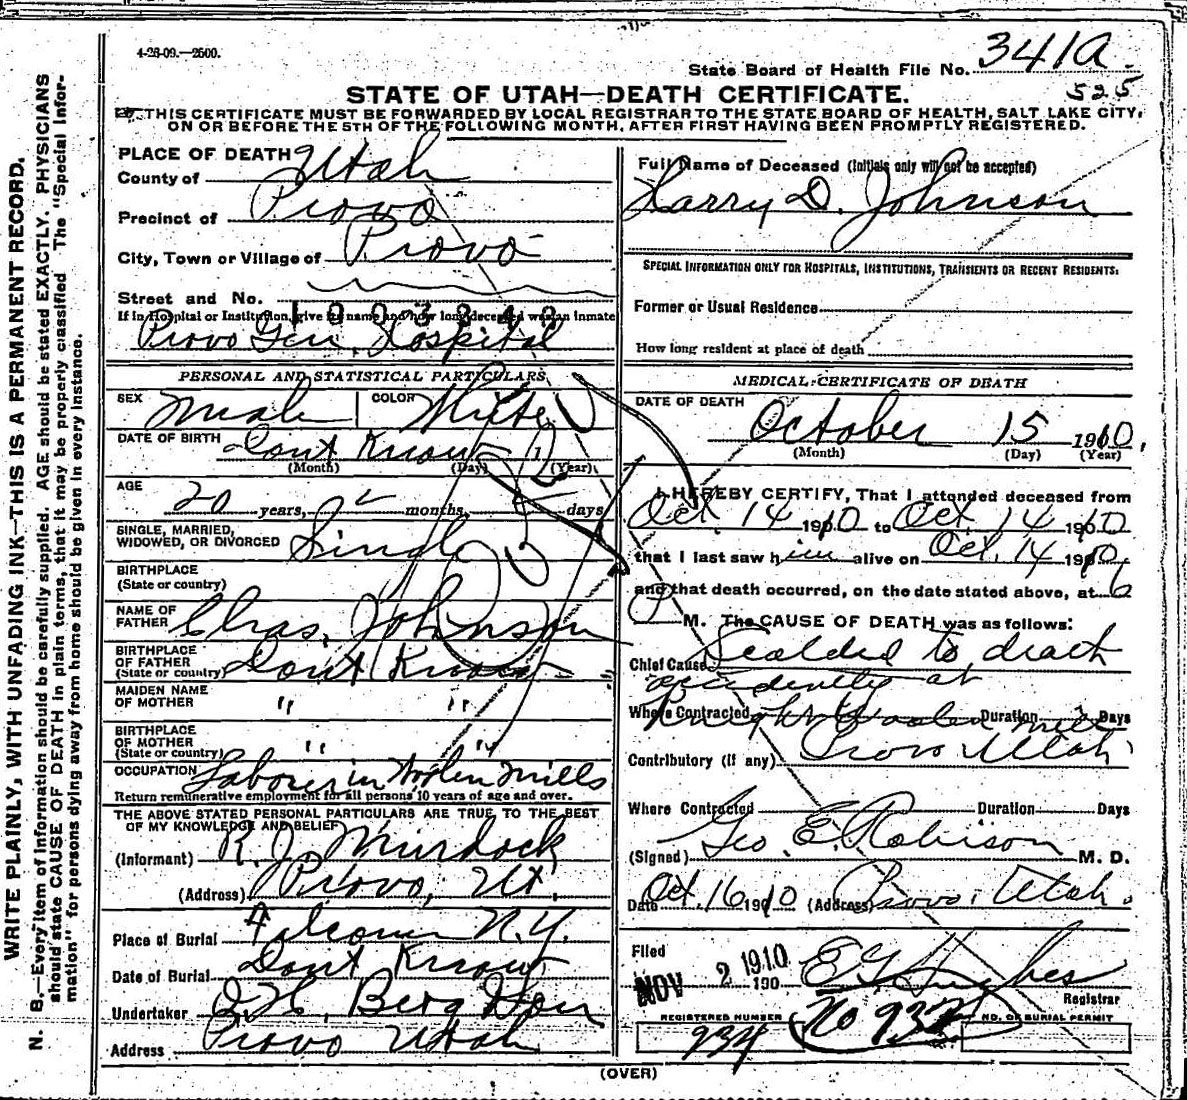 4-26-09.—2500.
State Board of Health File No. 341a.
525
STATE OF UTAH—DEATH CERTIFICATE.
THIS CERTIFICATE MUST BE FORWARDED BY LOCAL REGISTRAR TO THE STATE BOARD OF HEALTH, SALT LAKE CITY,
ON OR BEFORE THE 5TH OF THE FOLLOWING MONTH, AFTER FIRST HAVING BEEN PROMPTLY REGISTERED.
PLACE OF DEATH
County of Utah
Precinct of Provo
City, Town or Village of Provo
Street and No.
1003848
If in Hospital or Institution, give its name and how long deceased was an inmate
Provo Gen. Hospital
PERSONAL AND STATISTICAL PARTICULARS
SEX Male COLOR White
DATE OF BIRTH Dont Know
(Month) (Day) (Year)
AGE 20 years, months, days
SINGLE, MARRIED,
WIDOWED, OR DIVORCED Single
BIRTHPLACE
(State or country)
NAME OF
FATHER Chas. Johnson
BIRTHPLACE
OF FATHER
(State or country) Dont Know
MAIDEN NAME
OF MOTHER " "
BIRTHPLACE
OF MOTHER
(State or country) " "
OCCUPATION Laborer in Woolen Mills
Return remunerative employment for all persons 10 years of age and over.
THE ABOVE STATED PERSONAL PARTICULARS ARE TRUE TO THE BEST
OF MY KNOWLEDGE AND BELIEF
(Informant) R. J. Murdock
(Address) Provo, Ut.
Place of Burial Falconer N.Y.
Date of Burial Dont Know
Undertaker Berg
Address Provo Utah
Full Name of Deceased (Initials only will not be accepted)
Harry D. Johnson
SPECIAL INFORMATION ONLY FOR HOSPITALS, INSTITUTIONS, TRANSIENTS OR RECENT RESIDENTS:
Former or Usual Residence
How long resident at place of death
MEDICAL CERTIFICATE OF DEATH
DATE OF DEATH
October 15 1910,
(Month) (Day) (Year)
I HEREBY CERTIFY, That I attended deceased from
Oct. 14 1910 to Oct. 14 1910
that I last saw him alive on Oct. 14 1910,
and that death occurred, on the date stated above, at 6
M. The CAUSE OF DEATH was as follows:
Chief Cause Scalded to death
accidently at
Where Contracted Knight Woolen Mill Duration Days
Provo Utah
Contributory (if any)
Where Contracted Duration Days
(Signed) Geo. E. Robison M. D.
Date Oct. 16 1910 (Address) Provo, Utah.
Filed
NOV 2 1910 190
E G Hughes
Registrar
REGISTERED NUMBER
934
No 932
NO. OF BURIAL PERMIT
(OVER)
WRITE PLAINLY, WITH UNFADING INK—THIS IS A PERMANENT RECORD.
N. B.—Every item of information should be carefully supplied. AGE should be stated EXACTLY. PHYSICIANS
should state CAUSE OF DEATH in plain terms, that it may be properly classified. The "Special Infor-
mation" for persons dying away from home should be given in every instance.